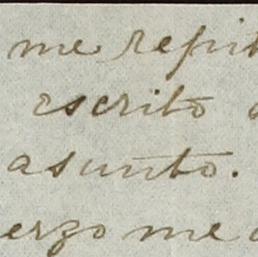 me repit
escrito
asunto.
erzo me